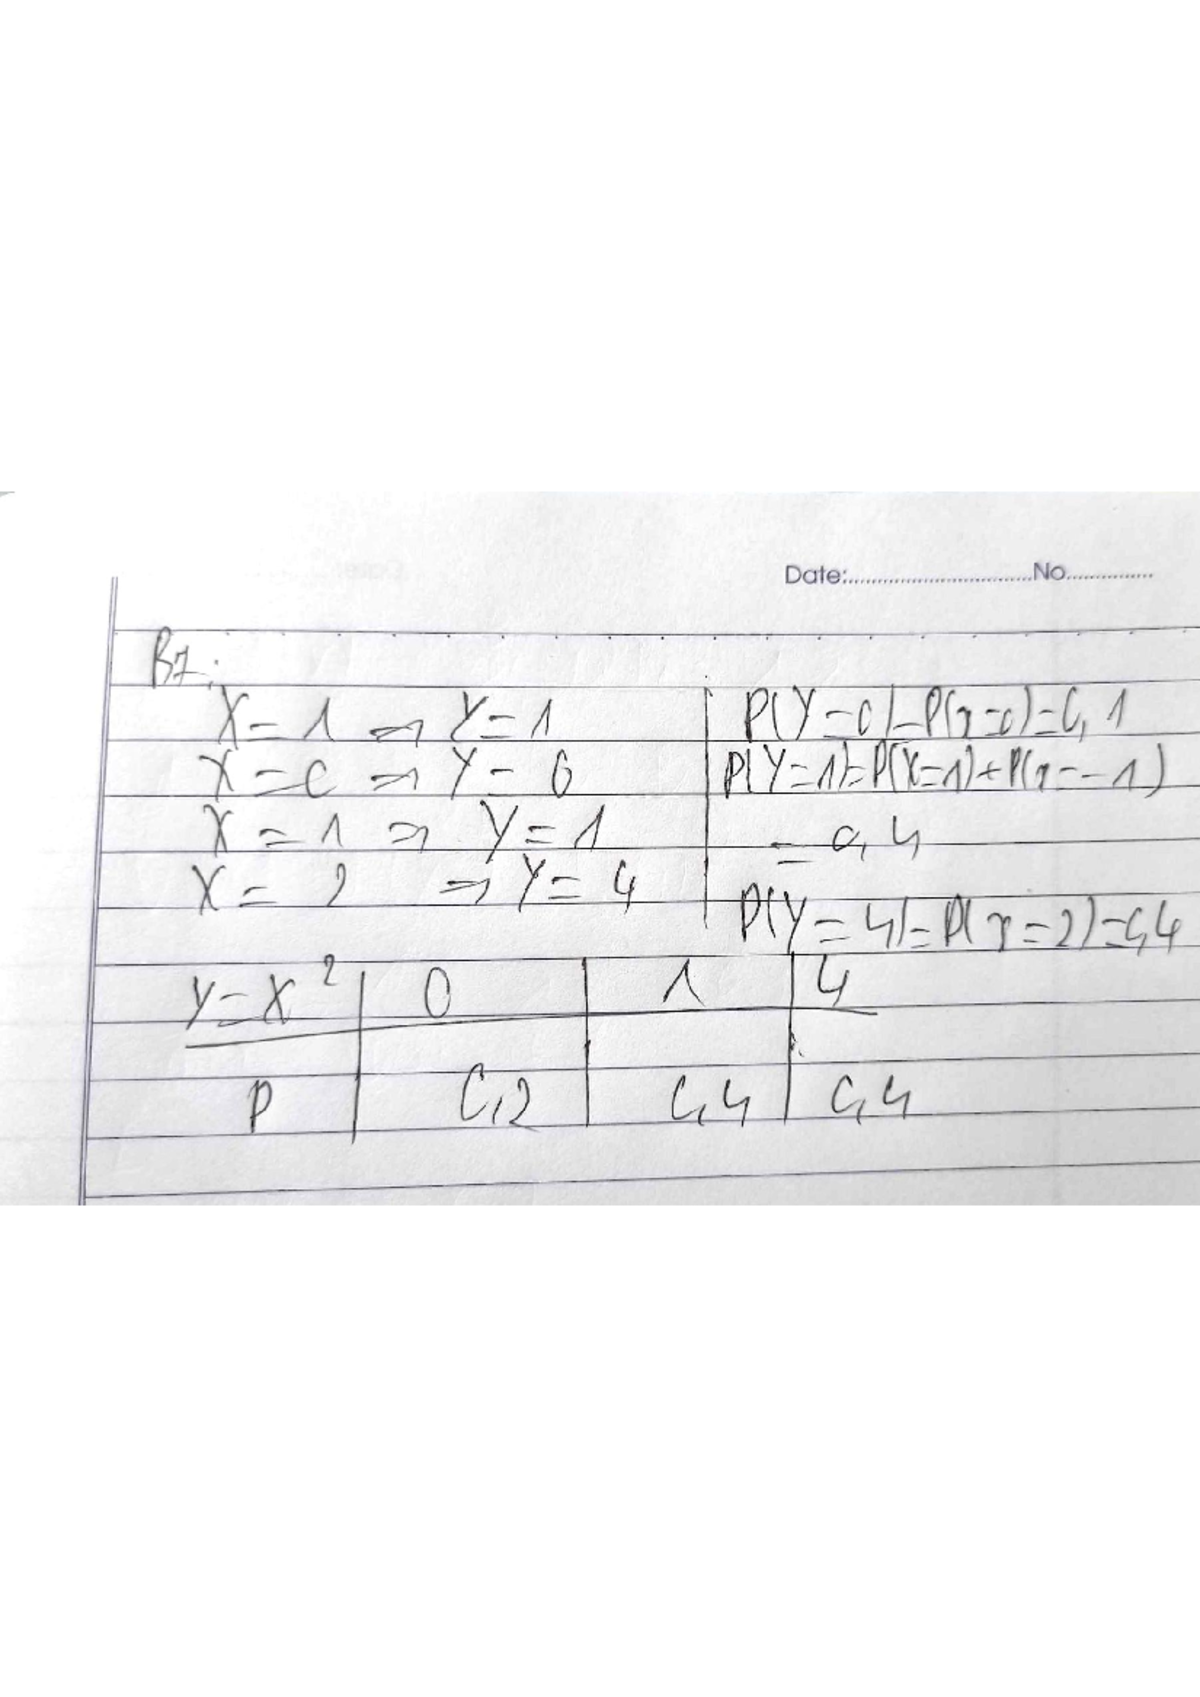 Date:..................................No................
B7:
X = 1 => Y = 1
X = 0 => Y = 0
X = 1 => Y = 1
X = 2 => Y = 4
P(Y=0)=P(x=0)=0,1
P(Y=1)=P(X=1)+P(x=-1)
= 0,4
P(Y=4)=P(x=2)=0,4
Y=X² | 0 | 1 | 4
P | 0,2 | 0,4 | 0,4